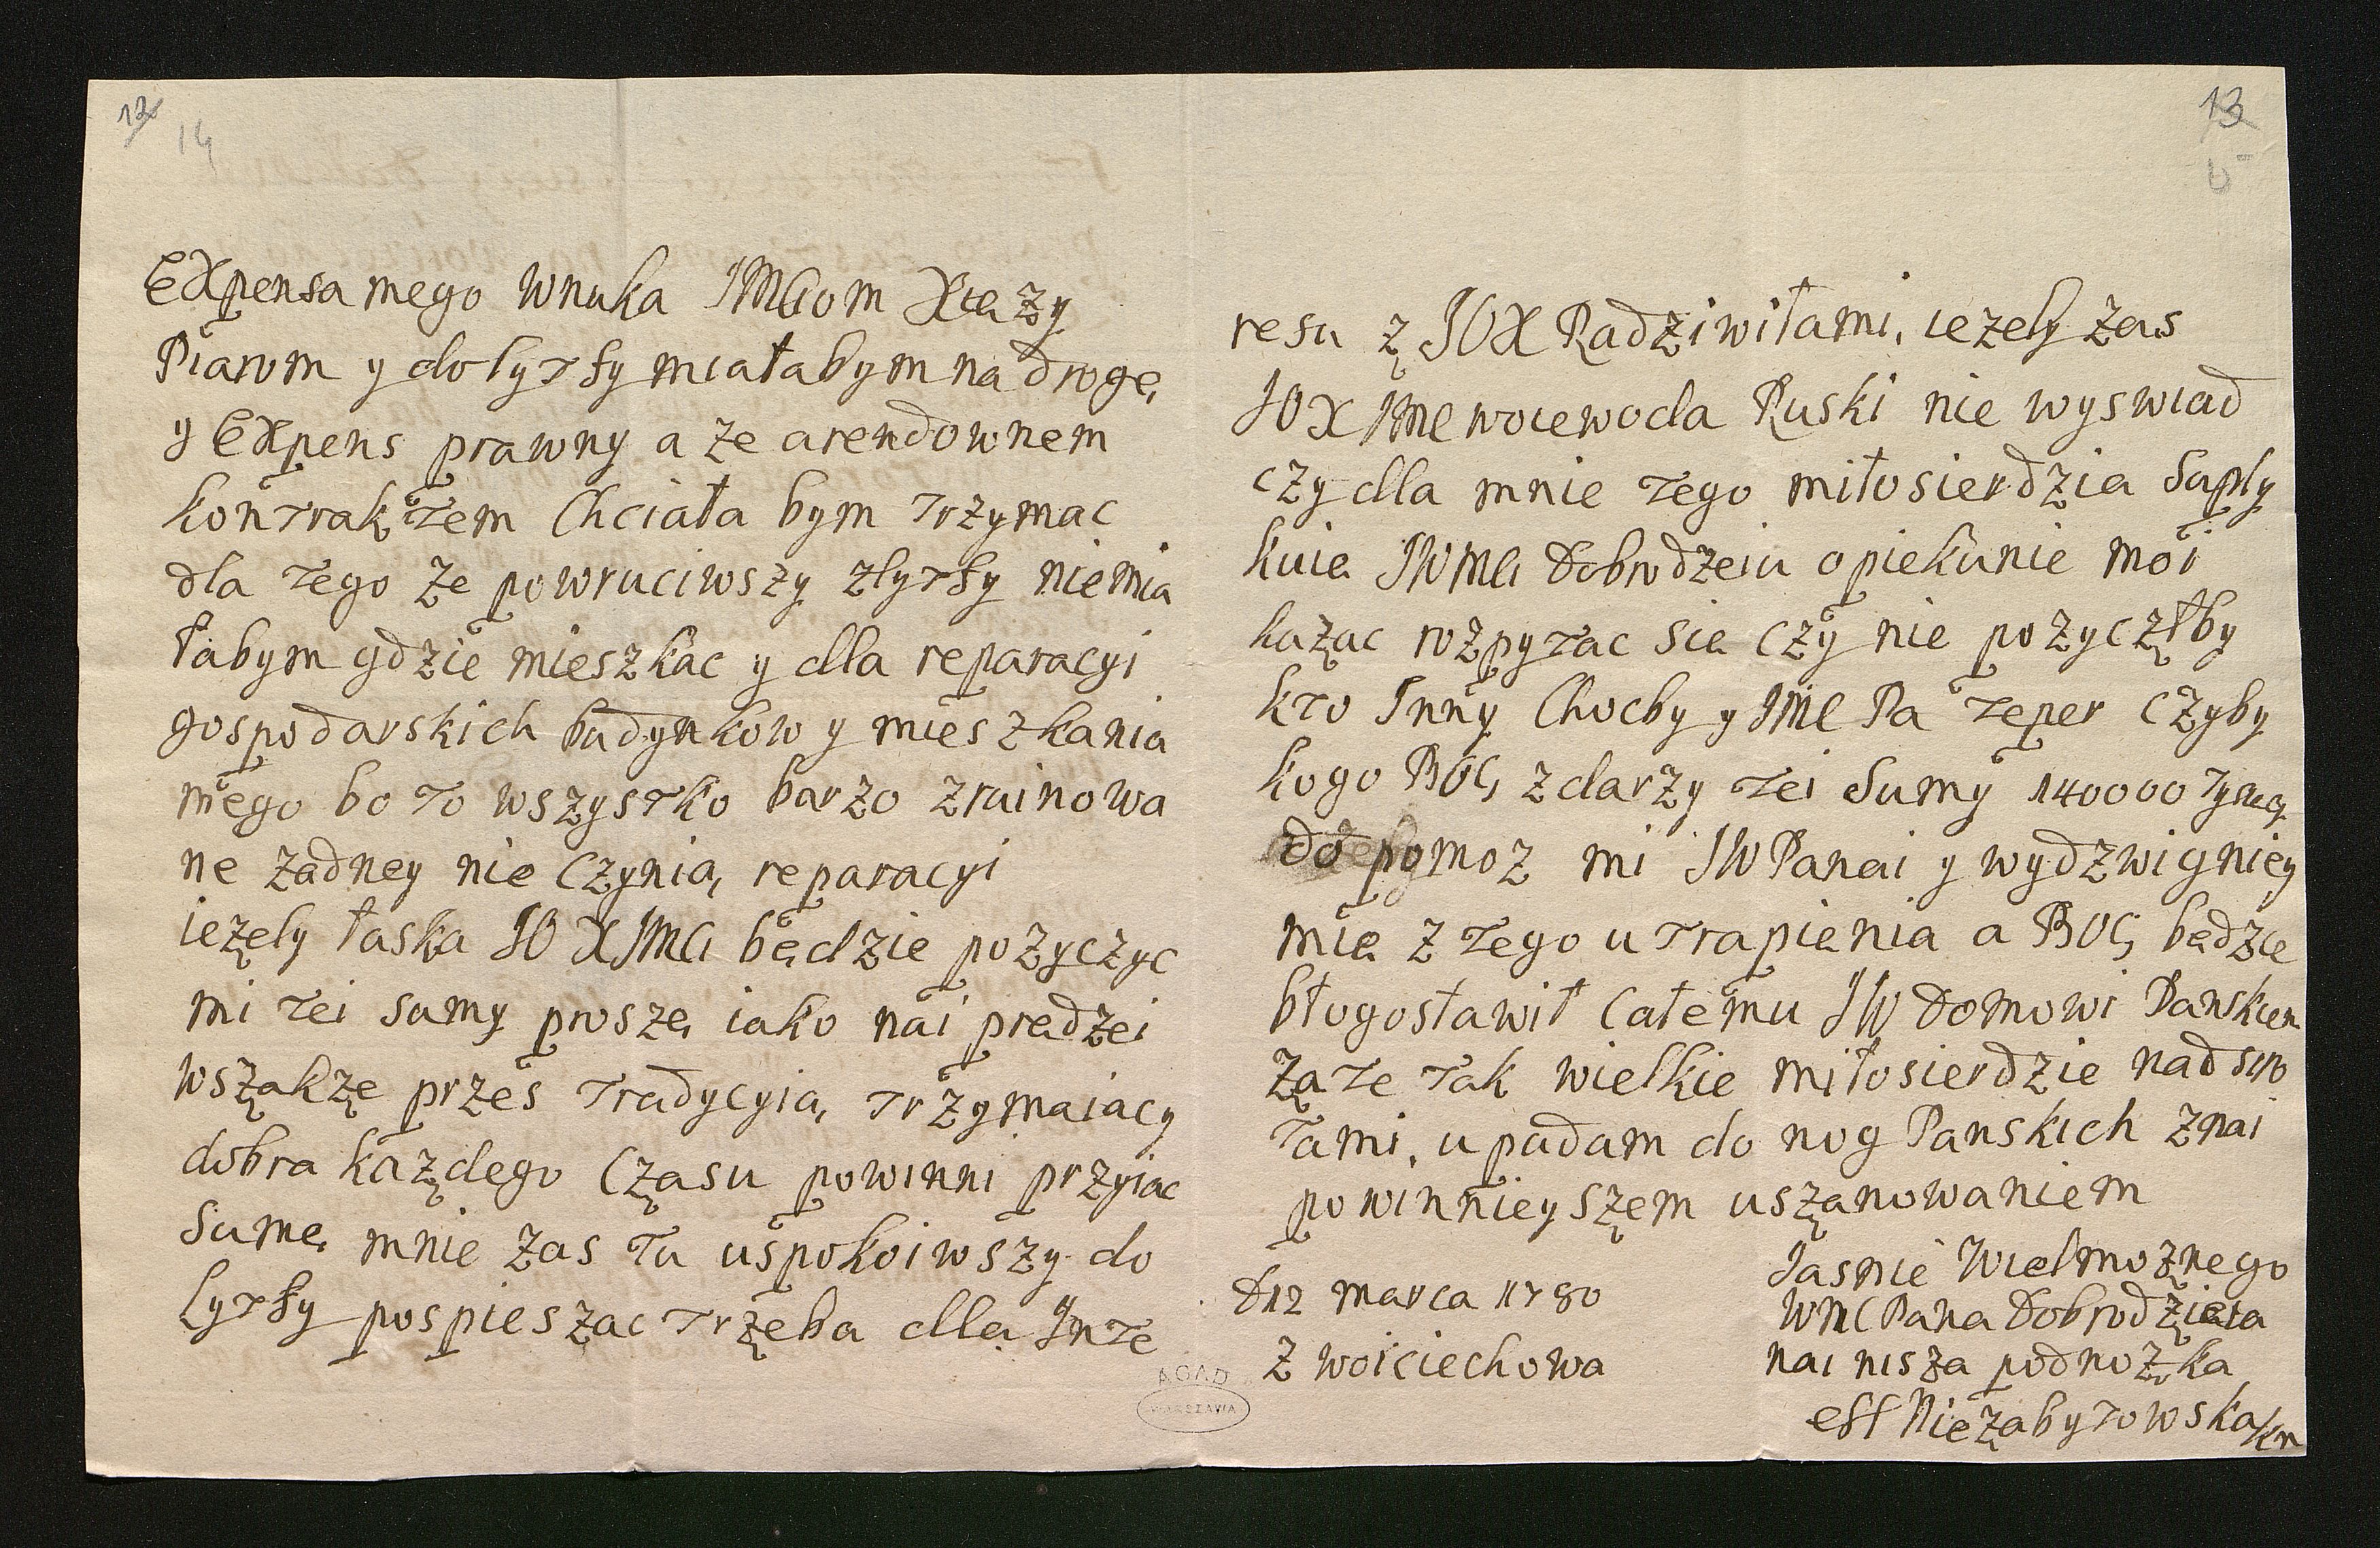 13
14
EXpensa mego wnuka JMCiom Xięży
Piarom y do lytfy miałabym na drogę,
y EXpens prawny a że arendownem
kontraktem Chciała bym trzymac
dla tego że powruciwszy zlytfy niemia
łabym gdzie mieszkac y dla reparacyi
gospodarskich budynkow y mieszkania
mego bo to wszystko barzo zruinowa
ne żadney nie Czynią, reparacyi
ieżely łaska JO X JMCi będzie pożyczyc
mi tei sumy proszę, iako nai prędzei
wszakże przes tradycyią, trzymaiacy
dobra każdego Czasu powinni przyiac
sumę, mnie zas tu uspokoiwszy do
lytfy pospieszac trzeba dla Jnte
13
resu z JOX Radziwiłami, ieżely żas
JOX JMC woiewoda Ruski nie wyswiad
czy dla mnie tego miłosierdzia suply
kuię JWMCi Dobrodzeiu opiekunie moi
każac rozpytac się czy nie pożyczłby
kto Jnny Chocby y JMC Pa teper Czyby
kogo BOG zdarzy tei sumy 140000 tysięcy
do pomoz mi JW Panai y wydzwigniey
mię z tego utrapienia a BOG będzie
błogosławił Całemu JW Domowi Panskiem
za te tak wielkie miłosierdzie nad siro
tami, upadam do nog Panskich znai
powinnieyszem uszanowaniem
Jasnie Wielmożnego
WMC Pana Dobrodzieia
nai nisza podnożka
Niezabytowska
D 12 marca 1780
z woiciechowa
AGAD
WARSZAWA